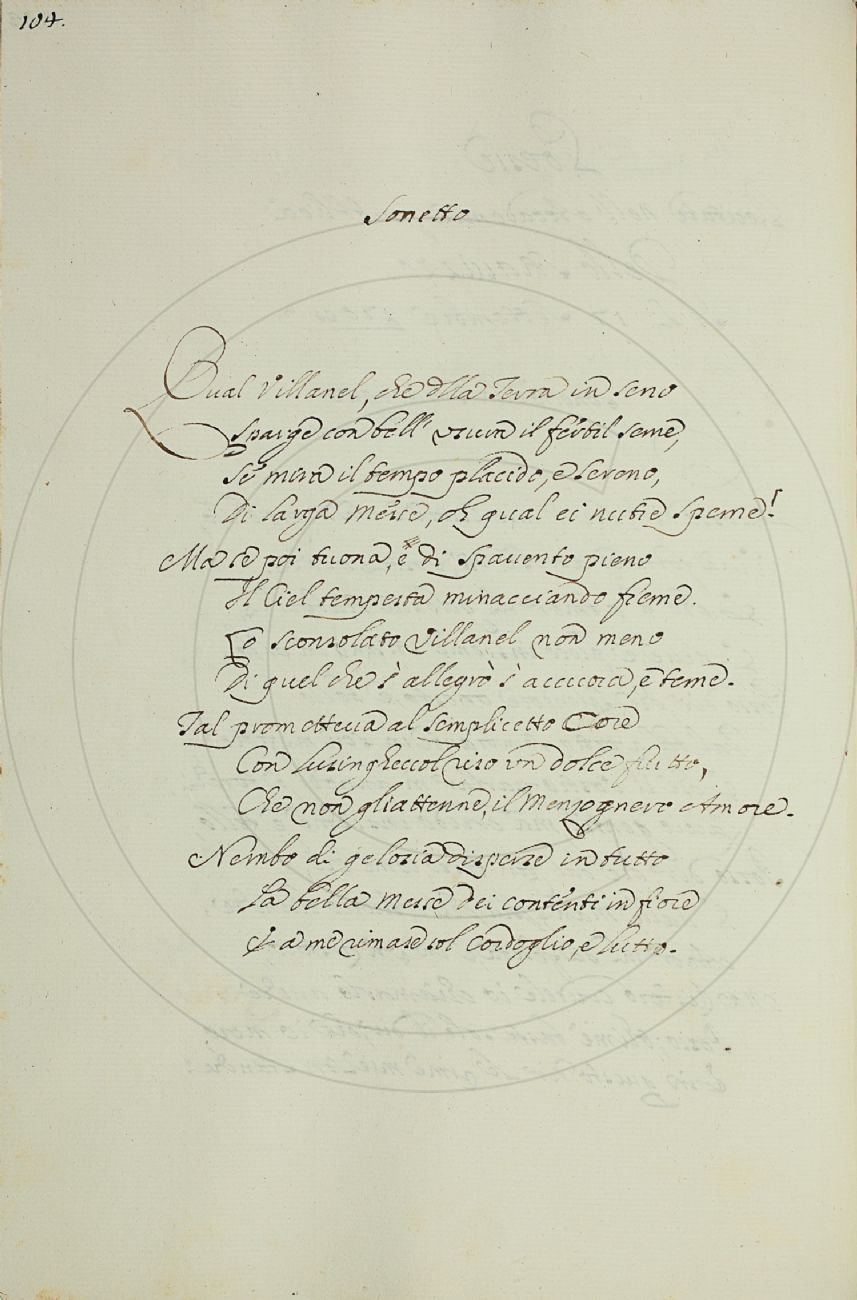 104.
Sonetto
Qual Villanel, che della Terra in seno
Sparge con bell' usura il fertil seme,
Se mira il tempo placido, e sereno,
Di larga Messe, oh qual ei nutre speme!
Ma se poi tuona, e di spavento pieno
Il Ciel tempesta minacciando freme.
Lo sconsolato Villanel non meno
Di quel che s'allegrò s'accuora, e teme.
Tal prometteva al semplicetto Core
Con lusinghevol viso un dolce frutto,
Che non gli attenne, il Menzognero Amore.
Nembo di gelosia disperse in tutto
La bella Messe dei contenti in fiore
E a me rimase sol Cordoglio, e lutto.